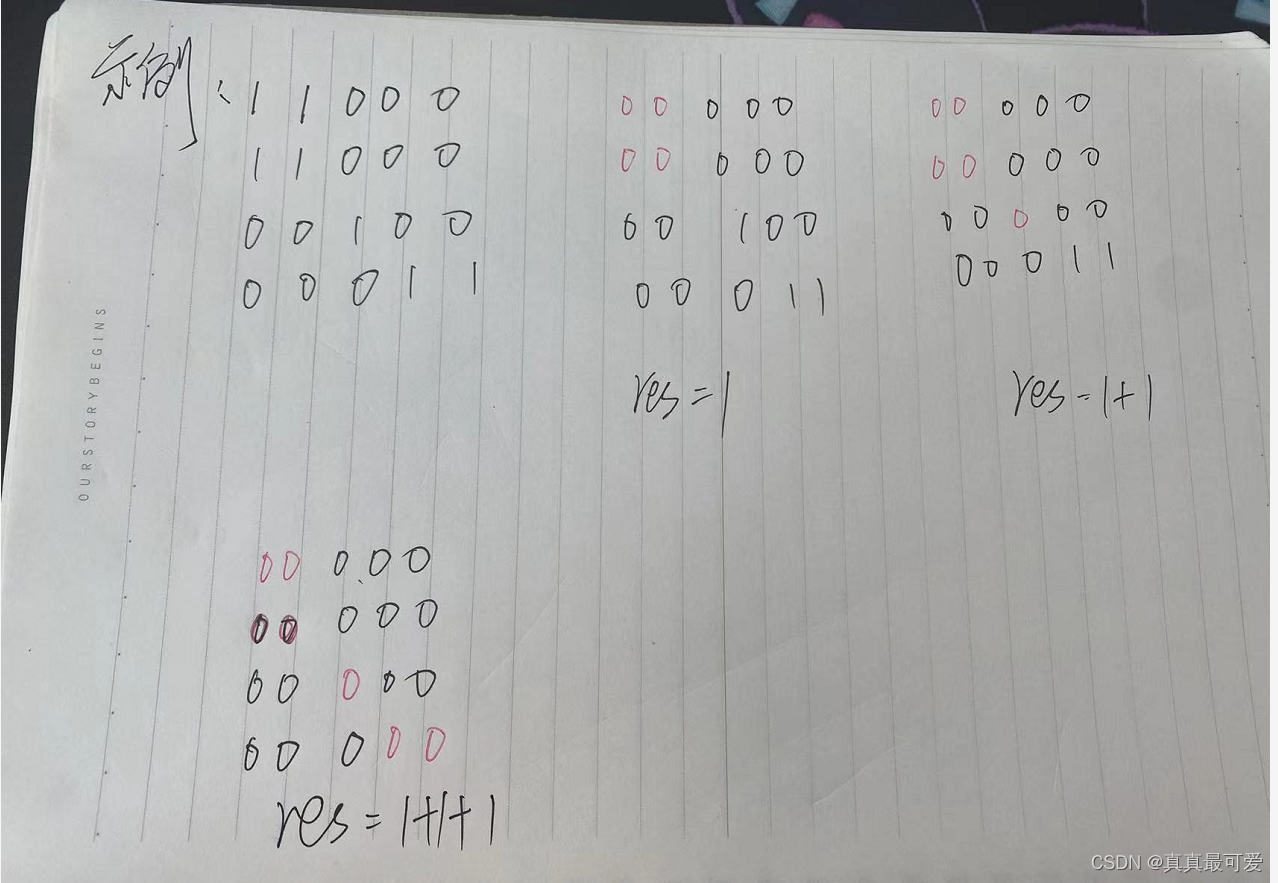 示例: 1 1 0 0 0
1 1 0 0 0
0 0 1 0 0
0 0 0 1 1
0 0 0 0 0
0 0 0 0 0
0 0 1 0 0
0 0 0 1 1
res = 1
0 0 0 0 0
0 0 0 0 0
0 0 0 0 0
0 0 0 1 1
res = 1+1
0 0 0 0 0
0 0 0 0 0
0 0 0 0 0
0 0 0 0 0
res = 1+1+1
OURSTORYBEGINS
CSDN @真真最可爱